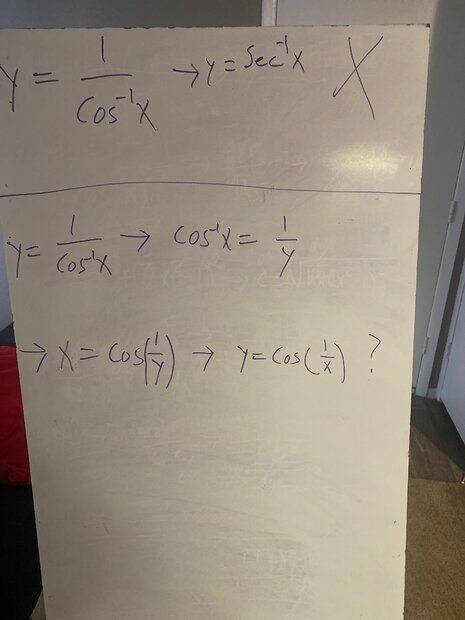 y = 1/cos⁻¹x → y = sec⁻¹x X
y = 1/cos⁻¹x → cos⁻¹x = 1/y
→ x = cos(1/y) → y = cos(1/x) ?